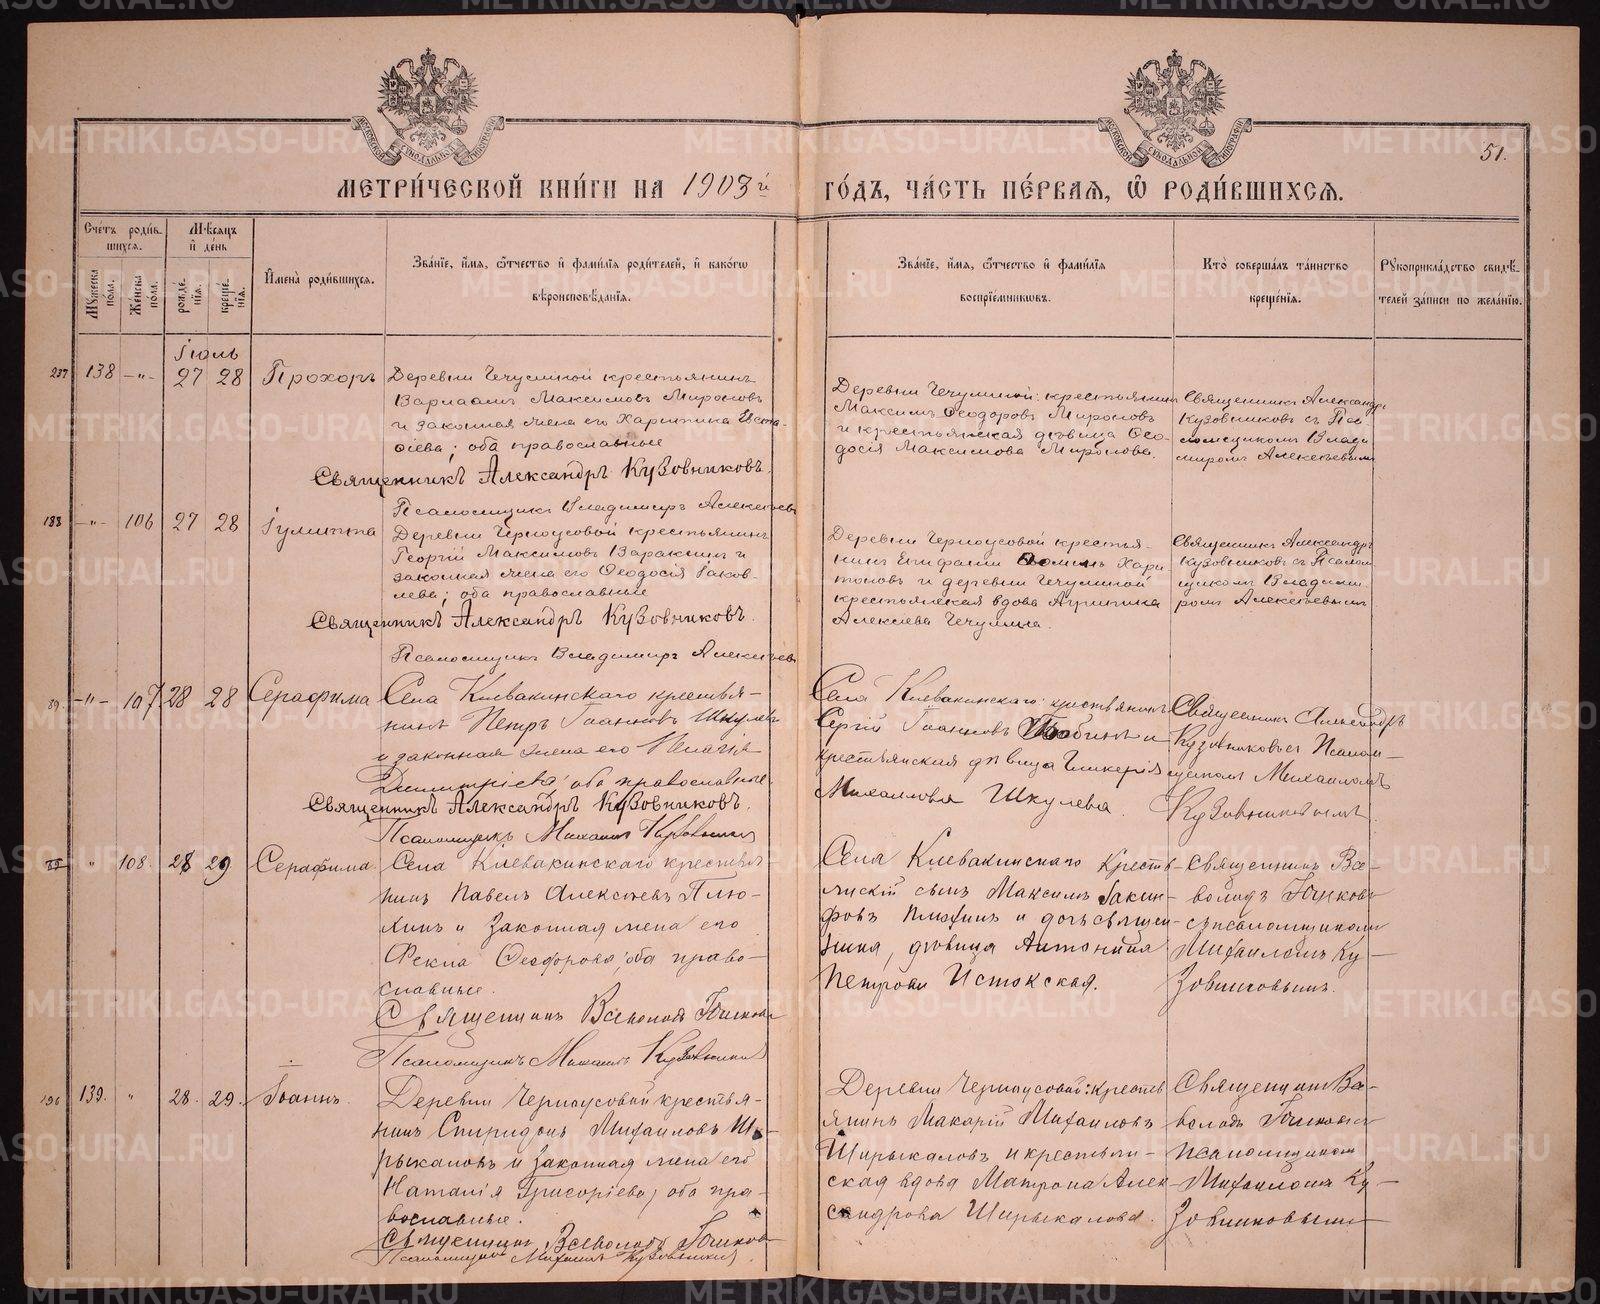 51.
МЕТРИ́ЧЕСКОЙ КНИ́ГИ НА 1903 й ГО́ДЪ, ЧА́СТЬ ПЕ́РВАЯ, Ѿ РОДИ́ВШИХСЯ.
Сче́тъ роди́в-
шихся.
Мѣ́сяцъ
и҆ де́нь
Му́жеска
пола.
Же́нска
пола.
рожде́-
нїя.
креще́-
нїя.
И҆мена̀ роди́вшихся.
Зва́нїе, и҆́мя, ѻ҆́тчество и҆ фами́лїя роди́телей, и҆ како́гѡ
вѣроисповѣ́данїя.
Зва́нїе, и҆́мя, ѻ҆́тчество и҆ фами́лїя
воспрїе́мниковъ.
Кто̀ соверша́лъ та́инство
креще́нїя.
Рꙋкоприкла́дство свидѣ́-
телей за́писи по жела́нїю.
Іюль
237 138 —„— 27 28 Прохоръ
Деревни Чечулиной крестьянинъ
Варлаамъ Максимовъ Мироновъ
и законная жена его Харитина Евста-
фіева; оба православные
Священникъ Александръ Кузовниковъ.
Псаломщикъ Владимиръ Алексѣевъ
Деревни Чечулиной: крестьянинъ
Максимъ Ѳеодоровъ Мироновъ
и крестьянская дѣвица Ѳео-
досія Максимова Миронова.
Священникъ Александръ
Кузовниковъ съ Пса-
ломщикомъ Влади
миромъ Алексѣевымъ
183 —„— 106 27 28 Іулитта
Деревни Черноусовой крестьянинъ
Георгій Максимовъ Вараксинъ и
законная жена его Ѳеодосія Іаков-
лева; оба православные
Священникъ Александръ Кузовниковъ.
Псаломщикъ Владимиръ Алексѣевъ
Деревни Черноусовой крестья-
нинъ Епифаній Хари
тоновъ и деревни Чечулиной
крестьянская вдова Агрипина
Алексіева Чечулина.
Священникъ Александръ
Кузовниковъ съ Псалом
щикомъ Владими
ромъ Алексѣевымъ
89. —„— 107 28 28 Серафима
Села Клевакинскаго крестья-
нинъ Петръ Іоанновъ Шкулевъ
и законная жена его Пелагія
Димитріева; оба православные.
Священникъ Александръ Кузовниковъ.
Псаломщикъ Михаилъ Кузовниковъ
Села Клевакинскаго: крестьянинъ
Сергій Іоанновъ и
крестьянская дѣвица Гликерія
Михаилова Шкулева.
Священникъ Александръ
Кузовниковъ съ Псалом-
щикомъ Михаиломъ
Кузовниковымъ.
„ 108. 28 29 Серафима.
Села Клевакинскаго крестья-
нинъ Павелъ Алексѣевъ Плю-
хинъ и законная жена его
Ѳекла Ѳеодорова; оба право-
славные.
Священникъ Всеволодъ
Псаломщикъ Михаилъ Кузовниковъ
Села Клевакинскаго крестья-
нскій сынъ Максимъ
и дочь священ-
ника, дѣвица Антонина
Петрова Истокская.
Священникъ Все-
володъ
съ псаломщикомъ
Михаиломъ Ку-
зовниковымъ.
196 139. „ 28. 29. Іоаннъ.
Деревни Черноусовой крестья-
нинъ Спиридонъ Михаиловъ Ши-
рыкаловъ и законная жена его
Наталія Григоріева, оба пра-
вославные.
Священникъ Всеволодъ
Псаломщикъ Михаилъ Кузовниковъ.
Деревни Черноусовой: кресть
янинъ Макарій Михаиловъ
Ширыкаловъ и крестьян-
ская вдова Матрона Алек-
сандрова Ширыкалова.
Священникъ Все-
володъ
псаломщикомъ
Михаиломъ Ку-
зовниковымъ
METRIKI.GASO-URAL.RU